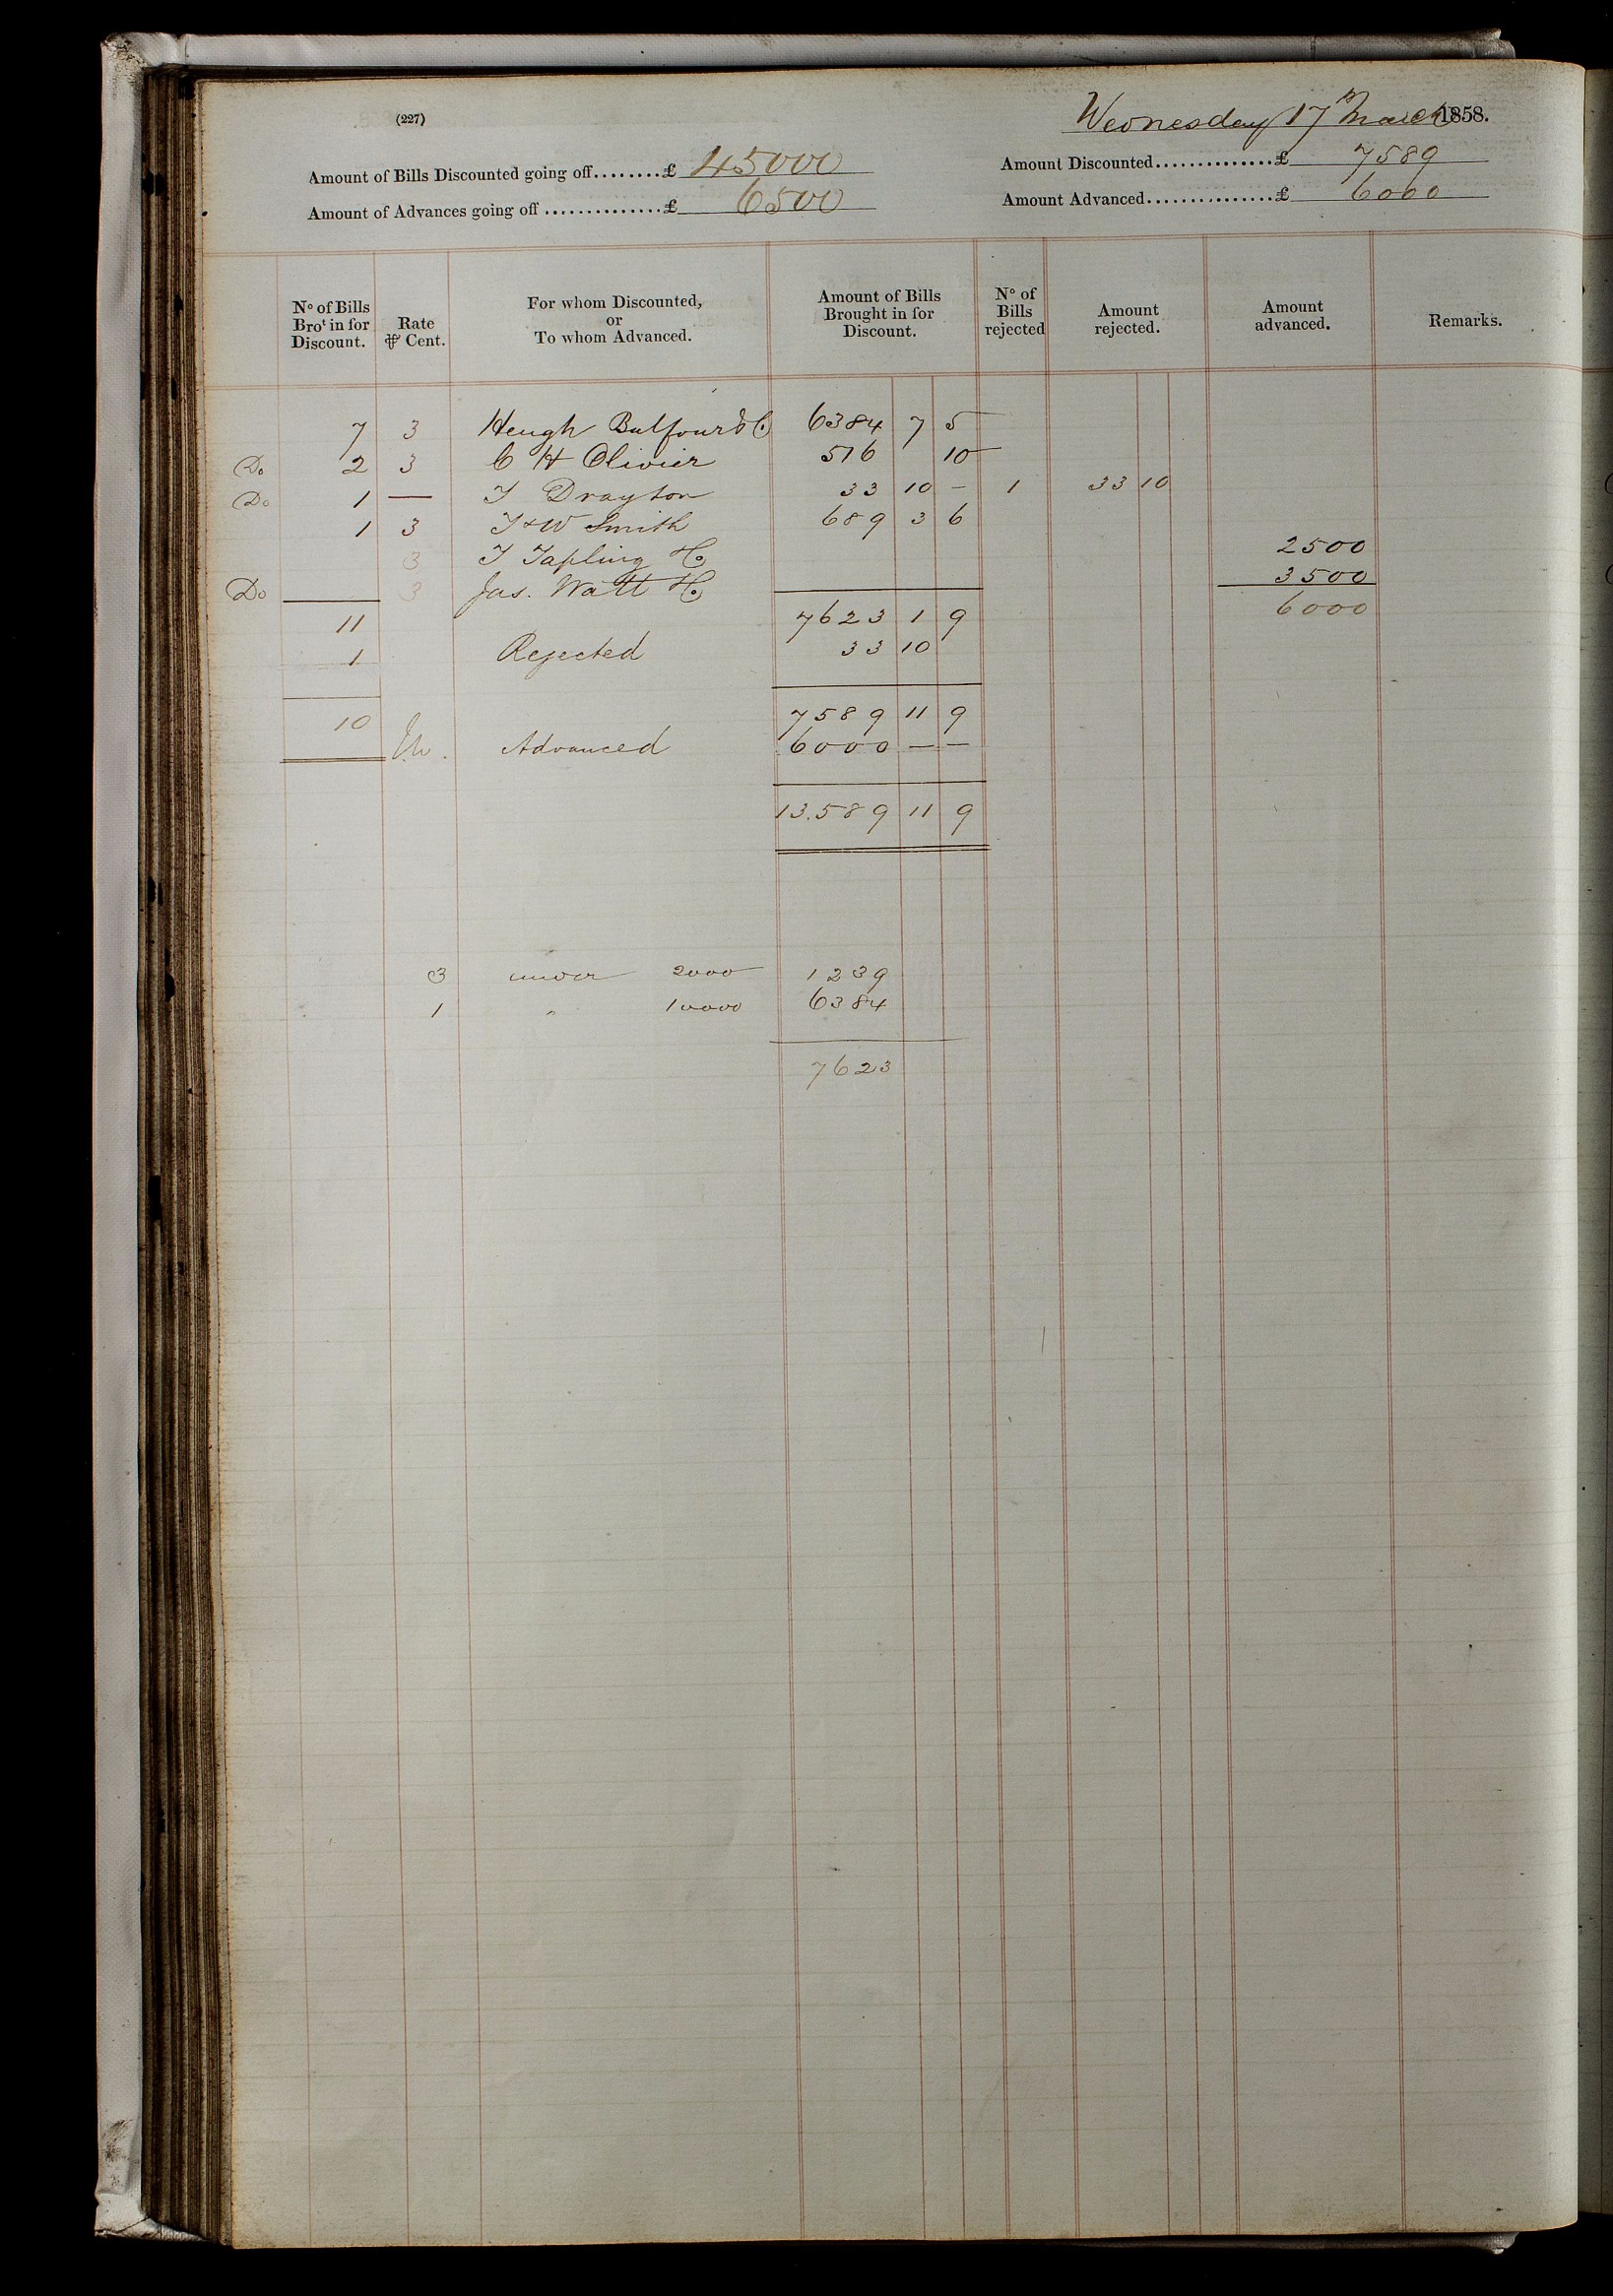 (227)
Wednesday 17th March 1858.
Amount of Bills Discounted going off........£ 45000
Amount Discounted..............£ 7589
Amount of Advances going off..............£ 6500
Amount Advanced...............£ 6000
No of Bills Brot in for Discount.
Rate ⅌ Cent.
For whom Discounted, or To whom Advanced.
Amount of Bills Brought in for Discount.
No of Bills rejected
Amount rejected.
Amount advanced.
Remarks.
7 3 Heugh Balfour & Co 6384 7 5
Do 2 3 C H Olivier 516 10
Do 1 — T Drayton 33 10 - 1 33 10
1 3 T & W Smith 689 3 6
3 T Tapling & Co 2500
Do 3 Jas. Watt & Co 3500
11 7623 1 9 6000
1 Rejected 33 10
10 7589 11 9
Advanced 6000 — —
13.589 11 9
3 under 2000 1239
1 " 10000 6384
7623